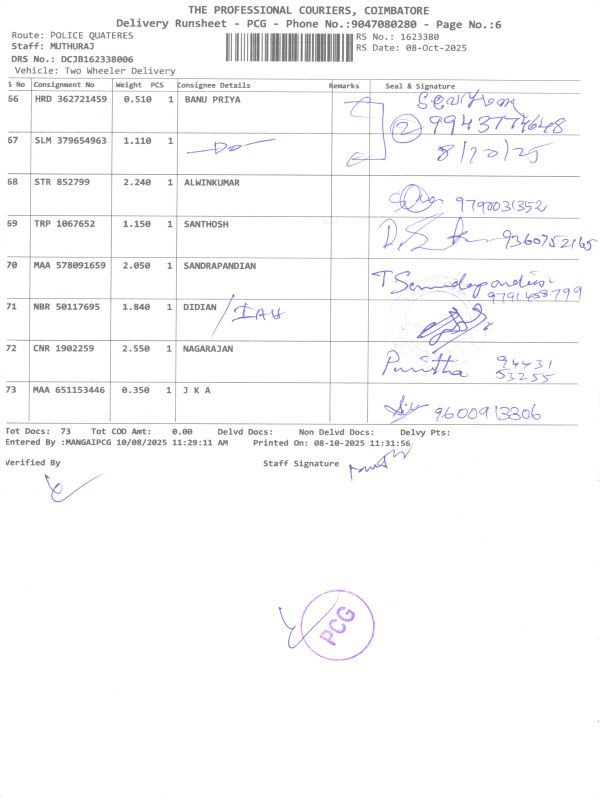 THE PROFESSIONAL COURIERS, COIMBATORE
Delivery Runsheet - PCG - Phone No.:9047080280 - Page No.:6
Route: POLICE QUATERES RS No.: 1623380
Staff: MUTHURAJ RS Date: 08-Oct-2025
DRS No.: DCJB162338006
Vehicle: Two Wheeler Delivery
S No Consignment No Weight PCS Consignee Details Remarks Seal & Signature
66 HRD 362721459 0.510 1 BANU PRIYA
2 9943774648
67 SLM 379654963 1.110 1 Do 8/10/25
68 STR 852799 2.240 1 ALWINKUMAR 9790031352
69 TRP 1067652 1.150 1 SANTHOSH 9360752165
70 MAA 578091659 2.050 1 SANDRAPANDIAN
71 NBR 50117695 1.840 1 DIDIAN
72 CNR 1902259 2.550 1 NAGARAJAN Punitha 94431
53255
73 MAA 651153446 0.350 1 J K A 9600913306
Tot Docs: 73 Tot COD Amt: 0.00 Delvd Docs: Non Delvd Docs: Delvy Pts:
Entered By :MANGAIPCG 10/08/2025 11:29:11 AM Printed On: 08-10-2025 11:31:56
Verified By Staff Signature
PCG